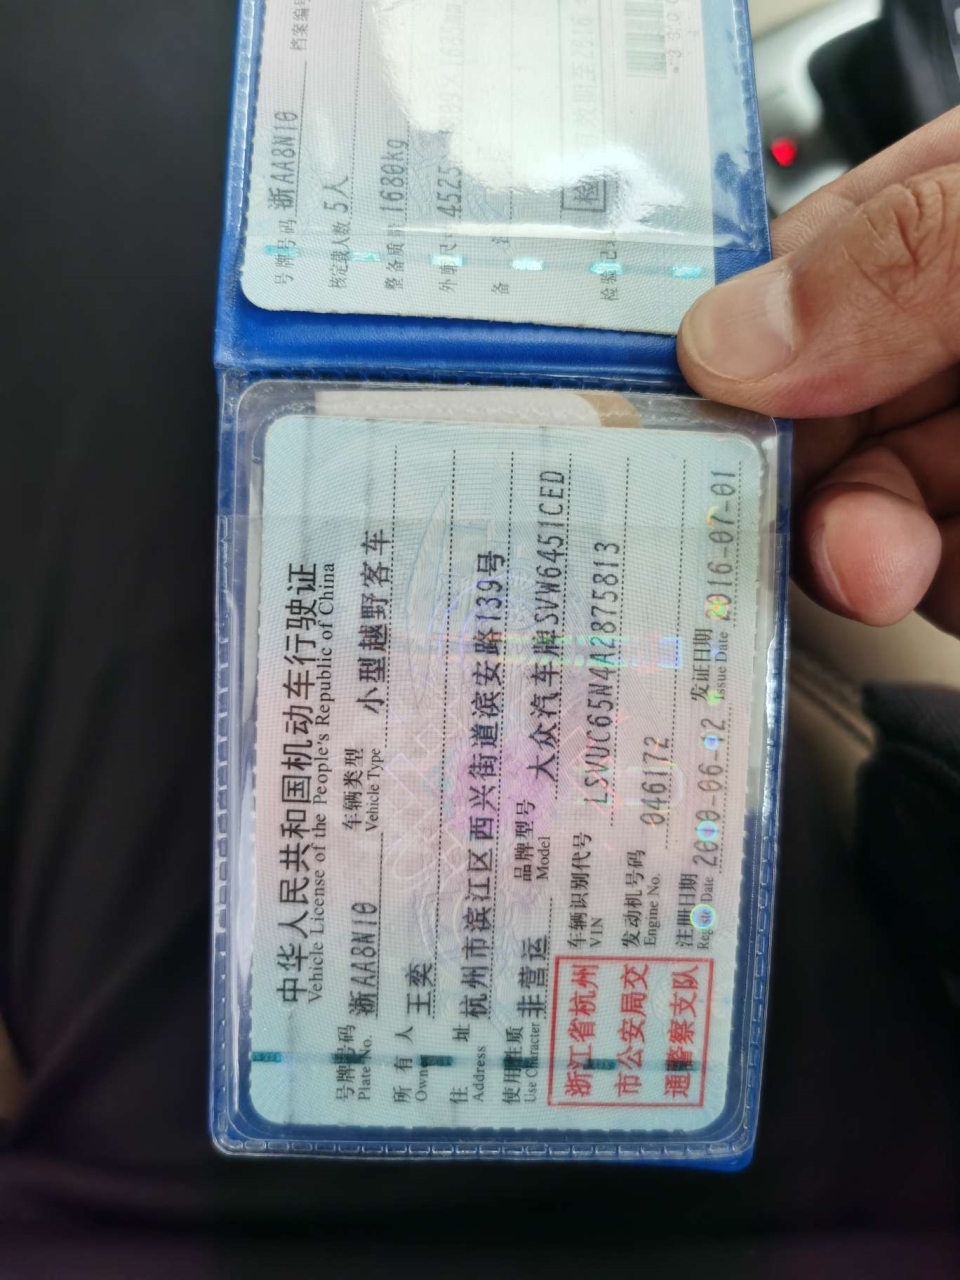 中华人民共和国机动车行驶证
Vehicle License of the People's Republic of China
号牌号码 浙AA8N10 车辆类型 小型越野客车
Plate No. Vehicle Type
所有人 王奕
Owner
住址 杭州市滨江区西兴街道滨安路139号
Address
使用性质 非营运 品牌型号 大众汽车牌SVW6451CED
Use Character Model
浙江省杭州
市公安局交
通警察支队
车辆识别代号 LSVUC65N4A2875813
VIN
发动机号码 046172
Engine No.
注册日期 发证日期 2016-07-01
Register Date Issue Date
号牌号码 浙AA8N10 档案编号
核定载人数 5人
整备质量 1680kg
外廓尺 4525
备
检验